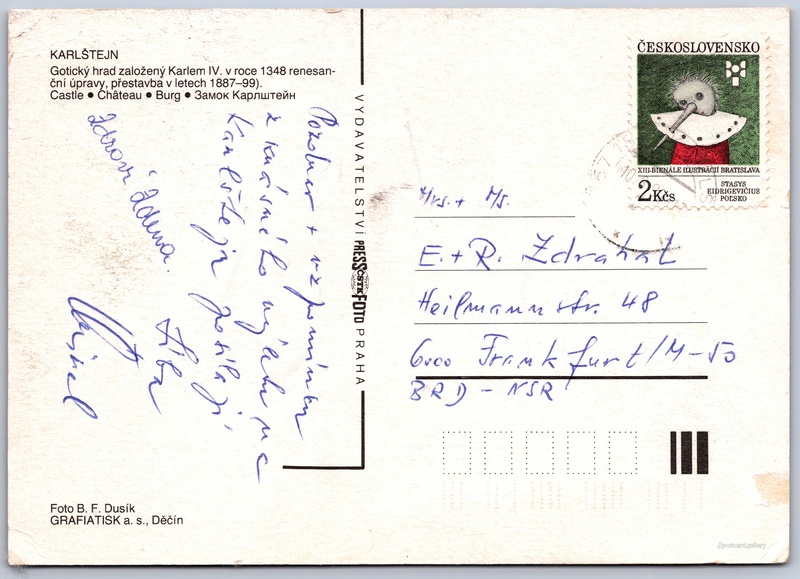 KARLŠTEJN
Gotický hrad založený Karlem IV. v roce 1348 renesan-
ční úpravy, přestavba v letech 1887–99).
Castle ● Château ● Burg ● Замок Карлштейн
Pozdrav + vzpomínku
z krásného výletu na
Karlštejn posílají
Líba
Zdraví Zdena.
VYDAVATELSTVÍ PRESSFOTO PRAHA
ČSTK
ČESKOSLOVENSKO
XIII. BIENÁLE ILUSTRÁCIÍ BRATISLAVA
2 Kčs
STASYS
EIDRIGEVIČIUS
POĽSKO
Mrs. + Ms.
E. + R. Zdrahal
Heilmannstr. 48
6000 Frankfurt/M-50
BRD - NSR
Foto B. F. Dusík
GRAFIATISK a. s., Děčín